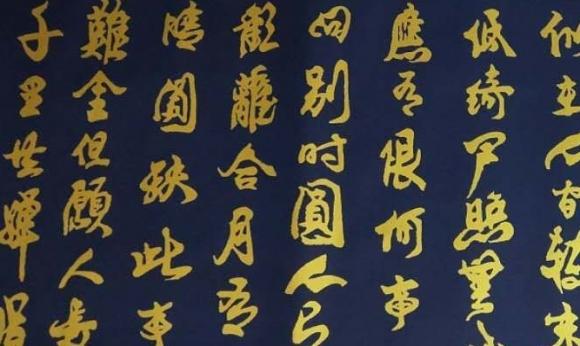 似在人間轉朱
低綺戶照無
應有恨何事
向别时圓人有
歡離合月有
晴圓缺此事
難全但願人長
千里共嬋娟